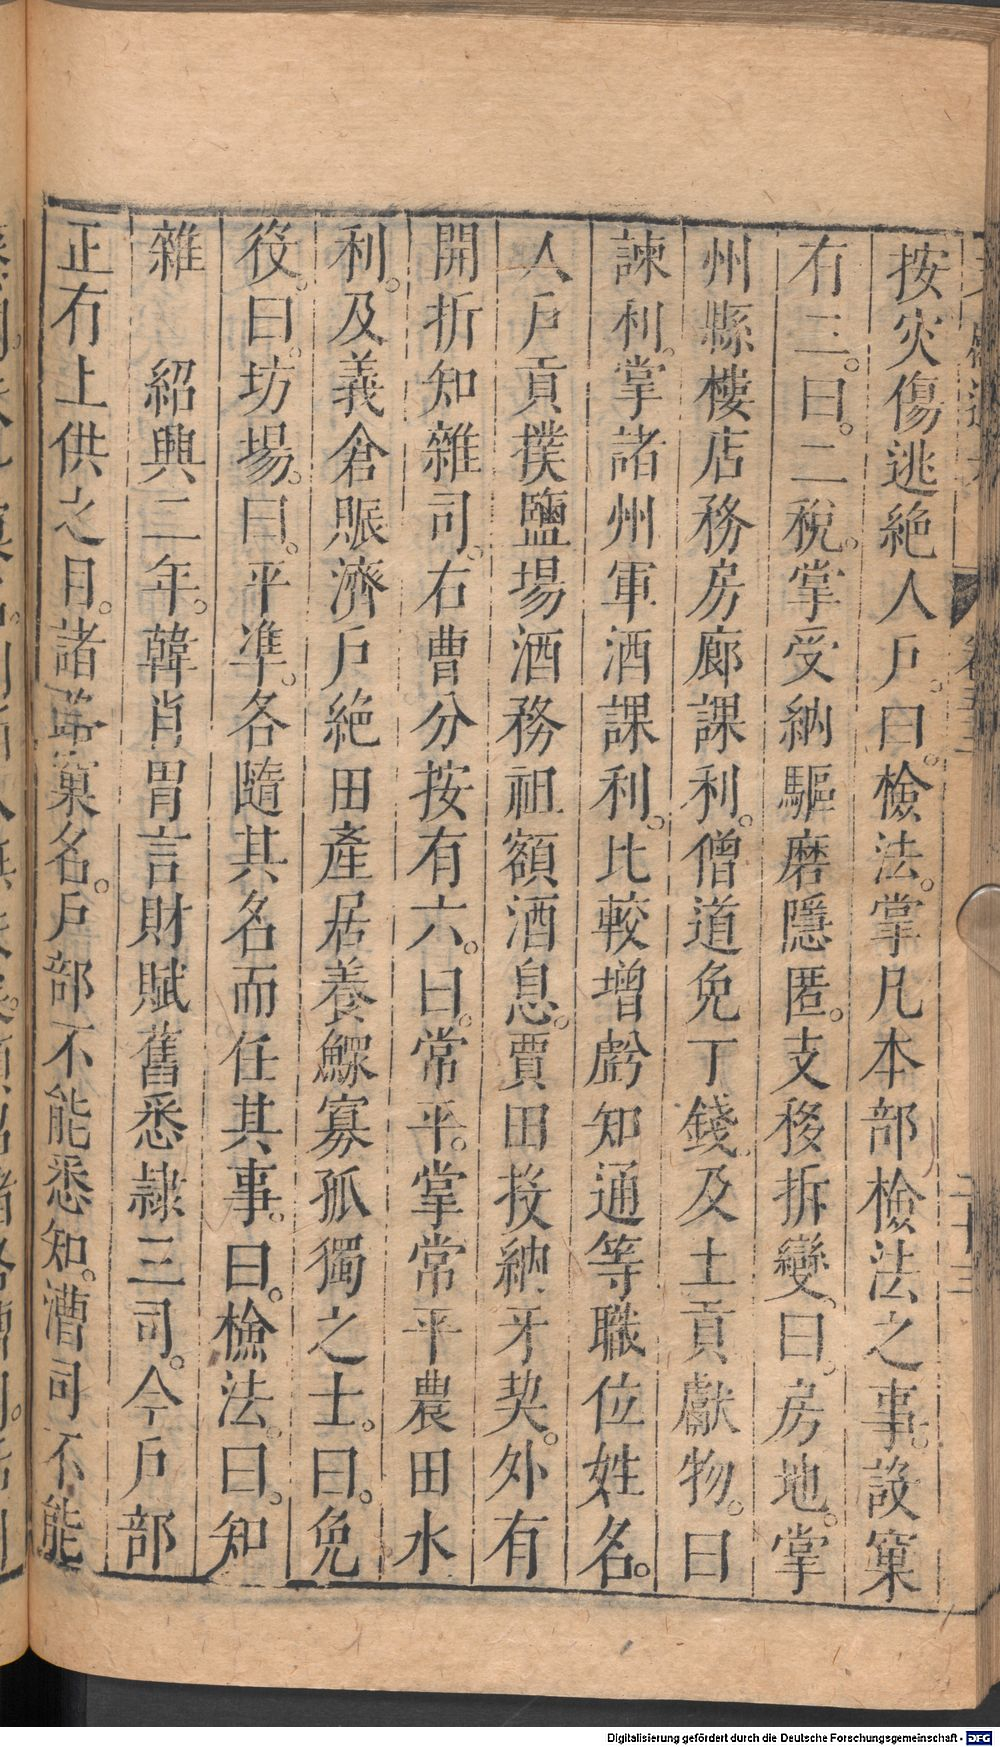 按灾傷逃絶人戸。曰。檢法。掌凡本部檢法之事。設窠
有三。曰。二稅。掌受納驅磨隱匿。支移拆變。曰。房地。掌
州縣樓店務房廊課利。僧道免丁錢及土貢獻物。曰
諫利。掌諸州軍酒課利。比較增虧知通等職位姓名。
人戸貢撲鹽場酒務祖額酒息。賣田投納牙契。外有
開折知雜司。右曹分按有六。曰。常平。掌常平農田水
利。及義倉賑濟戸絶田產居養鰥寡孤獨之士。曰。免
役。曰。坊場。曰。平準。各隨其名而任其事。曰。檢法。曰。知
雜　紹興二年。韓肖胄言財賦舊悉隷三司。今戸部
正有上供之目。諸路窠名。戸部不能悉知。漕司不能
卷五十二
二十三
Digitalisierung gefördert durch die Deutsche Forschungsgemeinschaft - DFG